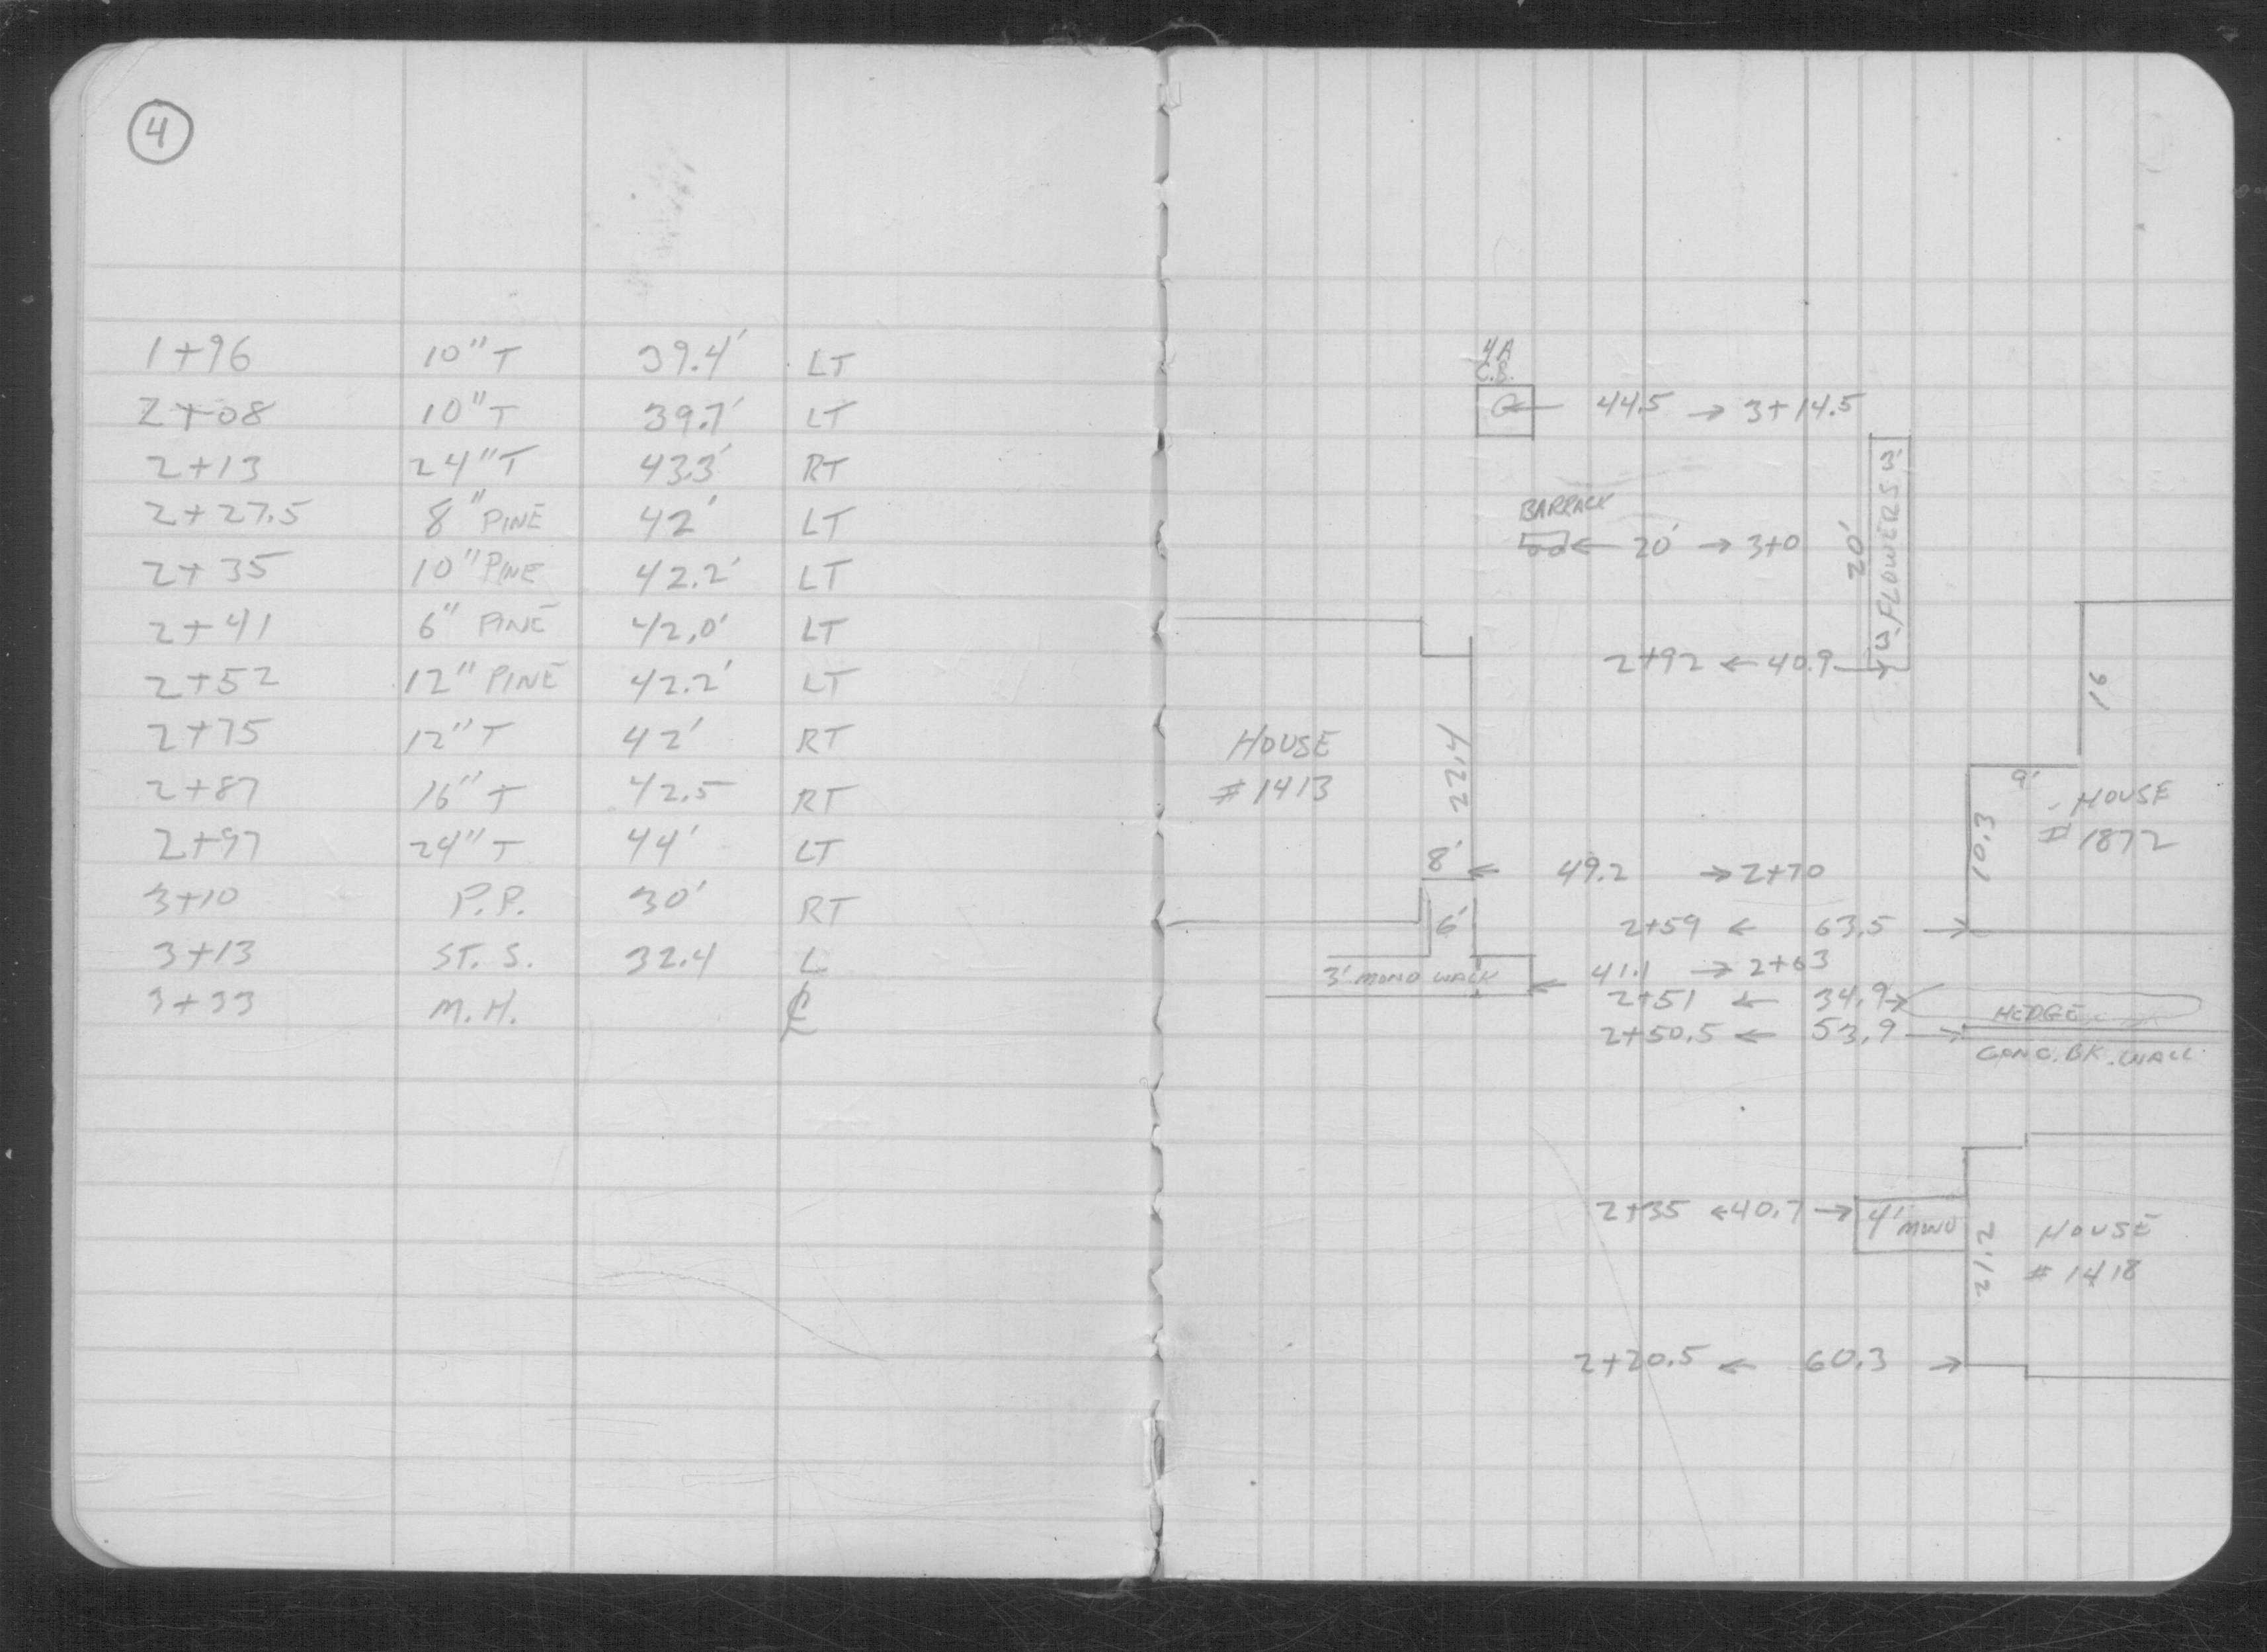 4
1+96 10"T 39.4' LT
2+08 10"T 39.7' LT
2+13 24"T 43.3' RT
2+27.5 8"PINE 42' LT
2+35 10"PINE 42.2' LT
2+41 6" PINE 42.0' LT
2+52 12"PINE 42.2' LT
2+75 12"T 42' RT
2+87 16"T 42.5 RT
2+97 24"T 44' LT
3+10 P.P. 30' RT
3+13 ST. S. 32.4 L
3+33 M.H. ℄
4A
C.B.
← 44.5 → 3+14.5
BARRACK
← 20' → 3+0
20'
3' FLOWERS 3'
2+92 ← 40.9 →
16
HOUSE
#1413
22.4
9'
HOUSE
# 1872
10.3
8' ← 49.2 → 2+70
6'
2+59 ← 63.5 →
3' MONO WALK
← 41.1 → 2+63
2+51 ← 34.9 →
HEDGE
2+50.5 ← 53.9 →
CONC. BK. WALL
2+35 ← 40.7 → 4' MONO
21.2
HOUSE
# 1418
2+20.5 ← 60.3 →